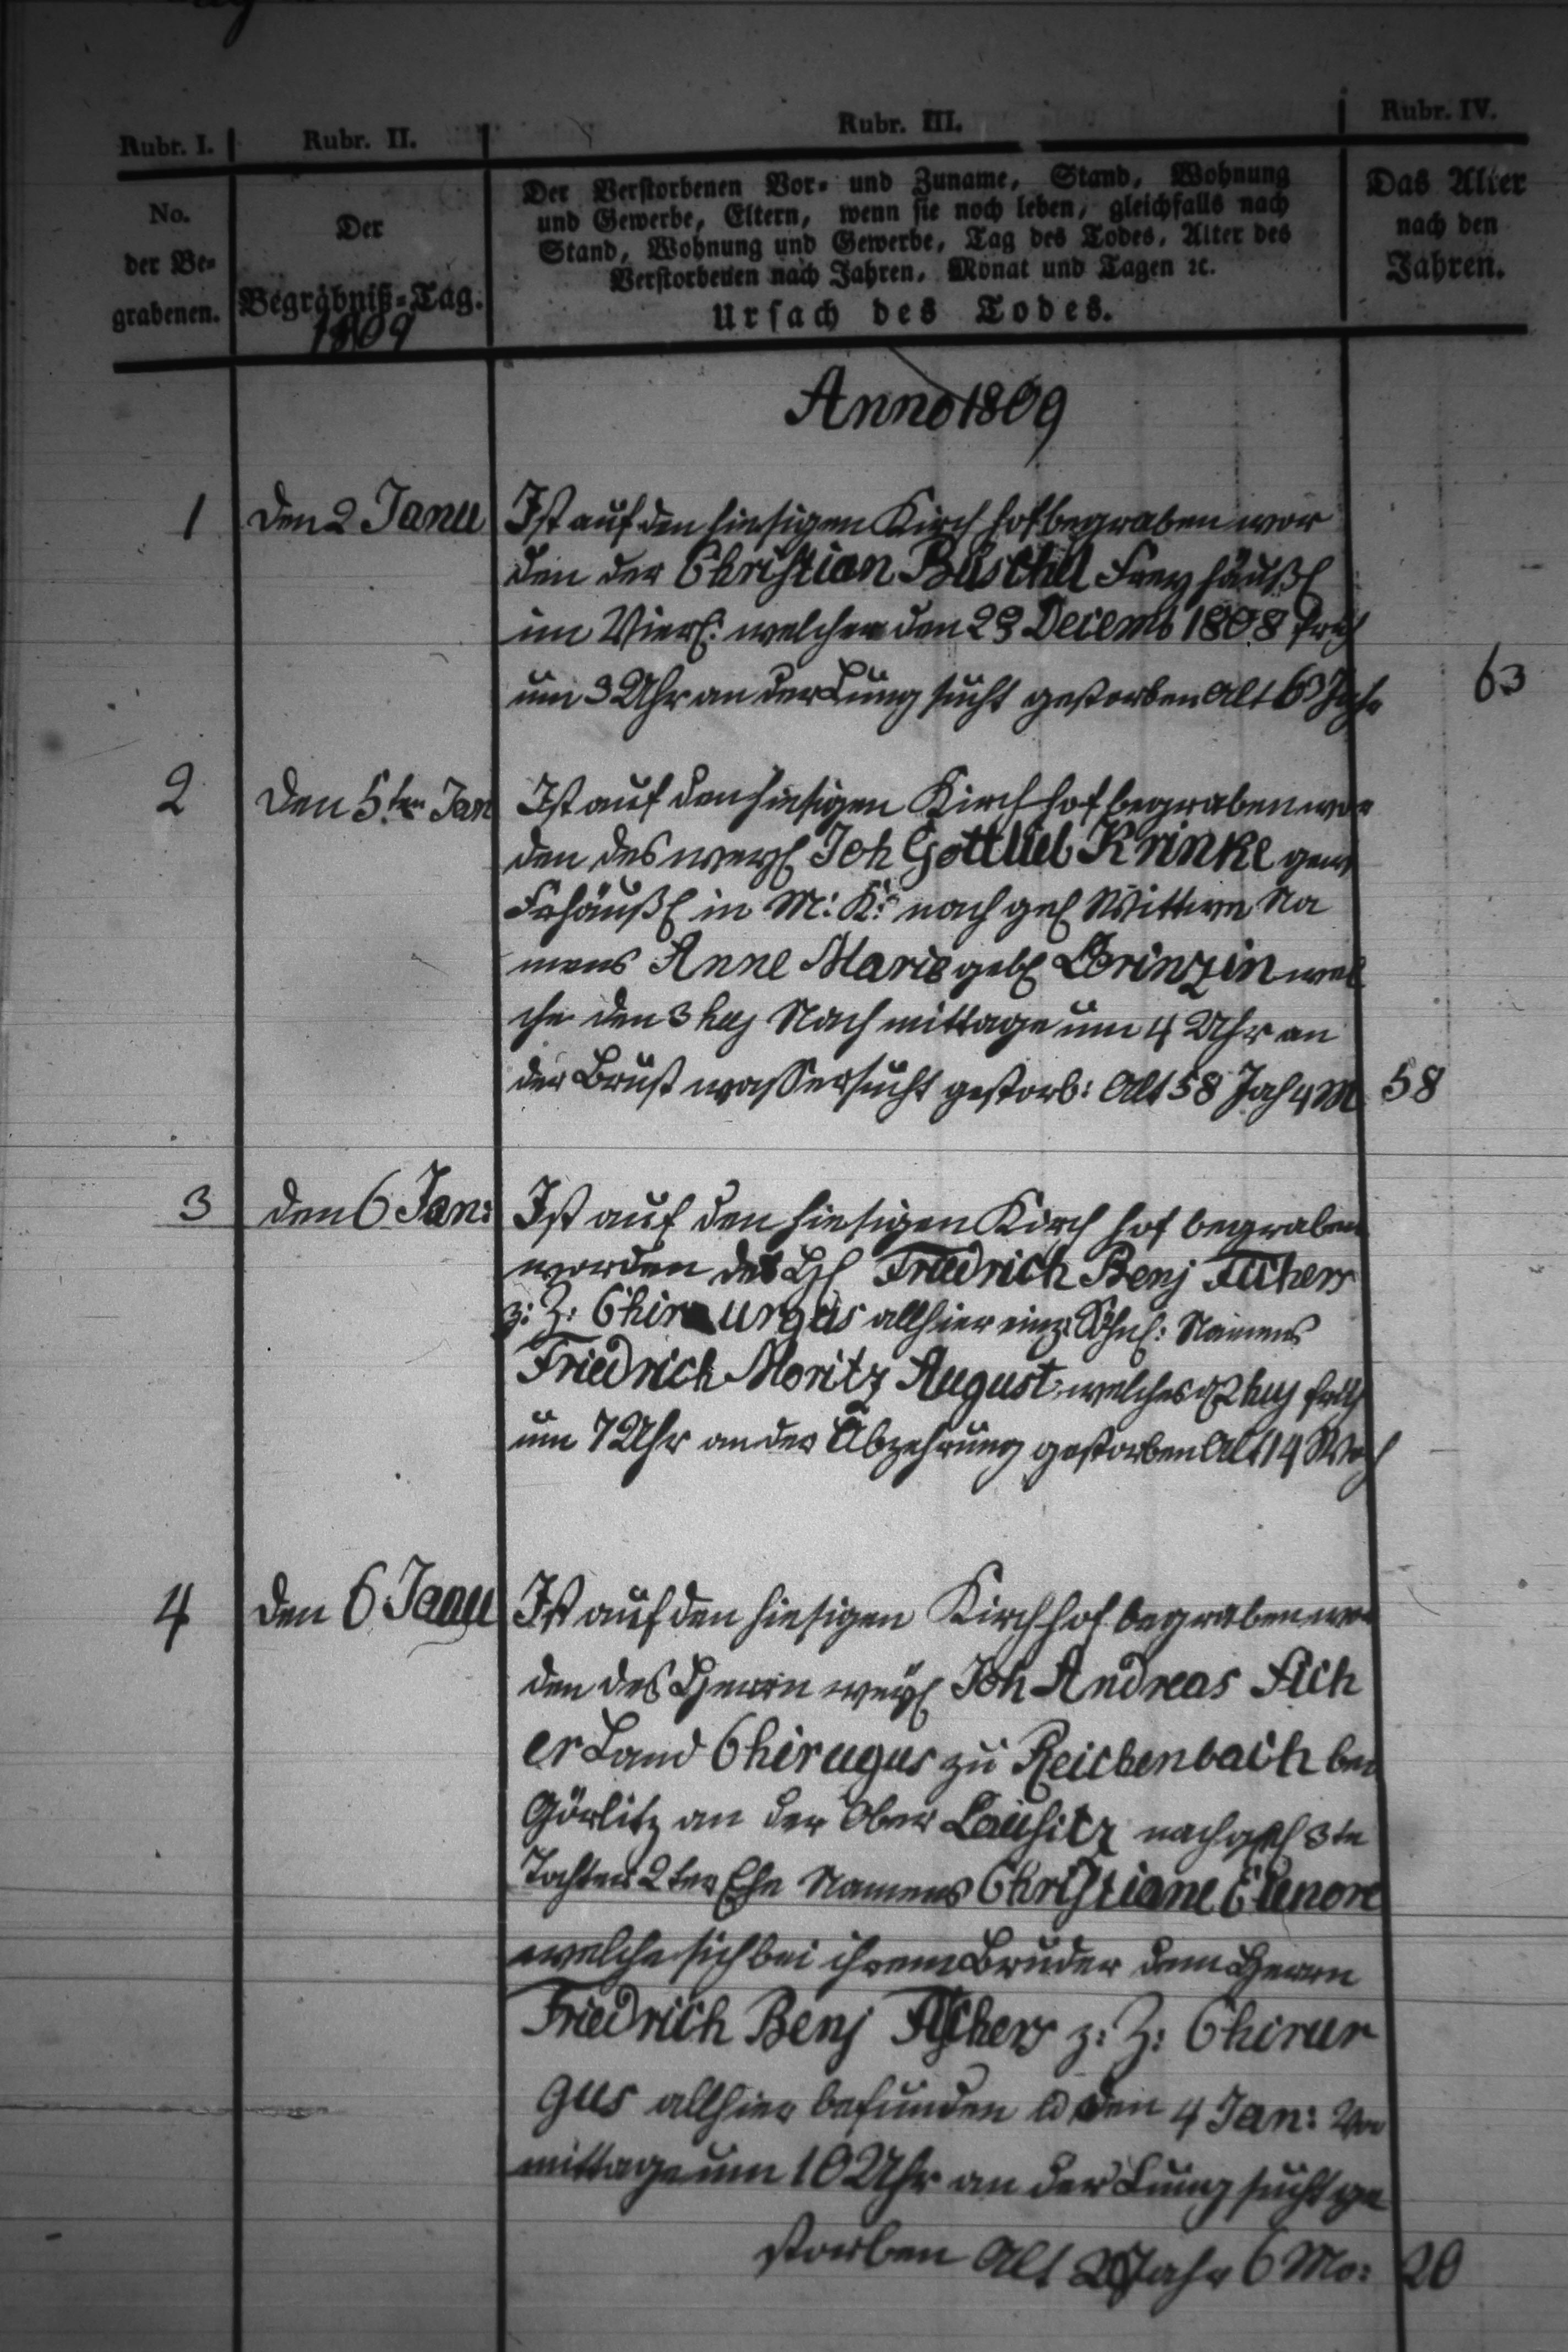 Rubr. I.
Rubr. II.
Rubr. III.
Rubr. IV.
No.
der Be-
grabenen.
Der
Begräbniß-Tag.
1809
Der Verstorbenen Vor- und Zuname, Stand, Wohnung
und Gewerbe, Eltern, wenn sie noch leben, gleichfalls nach
Stand, Wohnung und Gewerbe, Tag des Todes, Alter des
Verstorbenen nach Jahren, Monat und Tagen ꝛc.
Ursach des Todes.
Das Alter
nach den
Jahren.
Anno 1809
1
den 2 Janu
Ist auf den hiesigen Kirch hof begraben wor
den der Christian Büschel Freyhäußl
im Vierl: welcher den 29 Decemb 1808 früh
um 3 Uhr an der Lungsucht gestorben Alt 63 Jahr
63
2
den 5ten Jan
Ist auf den hiesigen Kirch hof begraben wor
den des weyl Joh Gottlieb Krinke gew
Frhäußl in M: K: nach gel Wittwe Na
mens Anne Marie geb wel
che den 3 huj Nachmittage um 4 Uhr an
der Brust wassersucht gestorb: Alt 58 Jah 4 M
58
3
den 6 Jan:
Ist auf den hiesigen Kirch hof begraben
worden des Friedrich Benj
z: Z: Chirurgus allhier einz: Söhnl: Namens
Friedrich Moritz August welches d 2 huj früh
um 7 Uhr an der Abzehrung gestorben Alt 14 Woch
4
den 6 Janu
Ist auf den hiesigen Kirch hof begraben wor
den des Herrn weyl Joh Andreas
er Land Chirugus zu Reichenbach bei
Görlitz an der Ober Lausitz nachgel 3te
Tochter 2ter Ehe Namens Christiane Elenore
welche sich bei ihrem Bruder dem Herrn
Friedrich Benj z: Z: Chirur
gus allhier befunden den 4 Jan: Vor
mittage um 10 Uhr an der Lungsucht ge
storben Alt 20 Jahr 6 Mo:
20